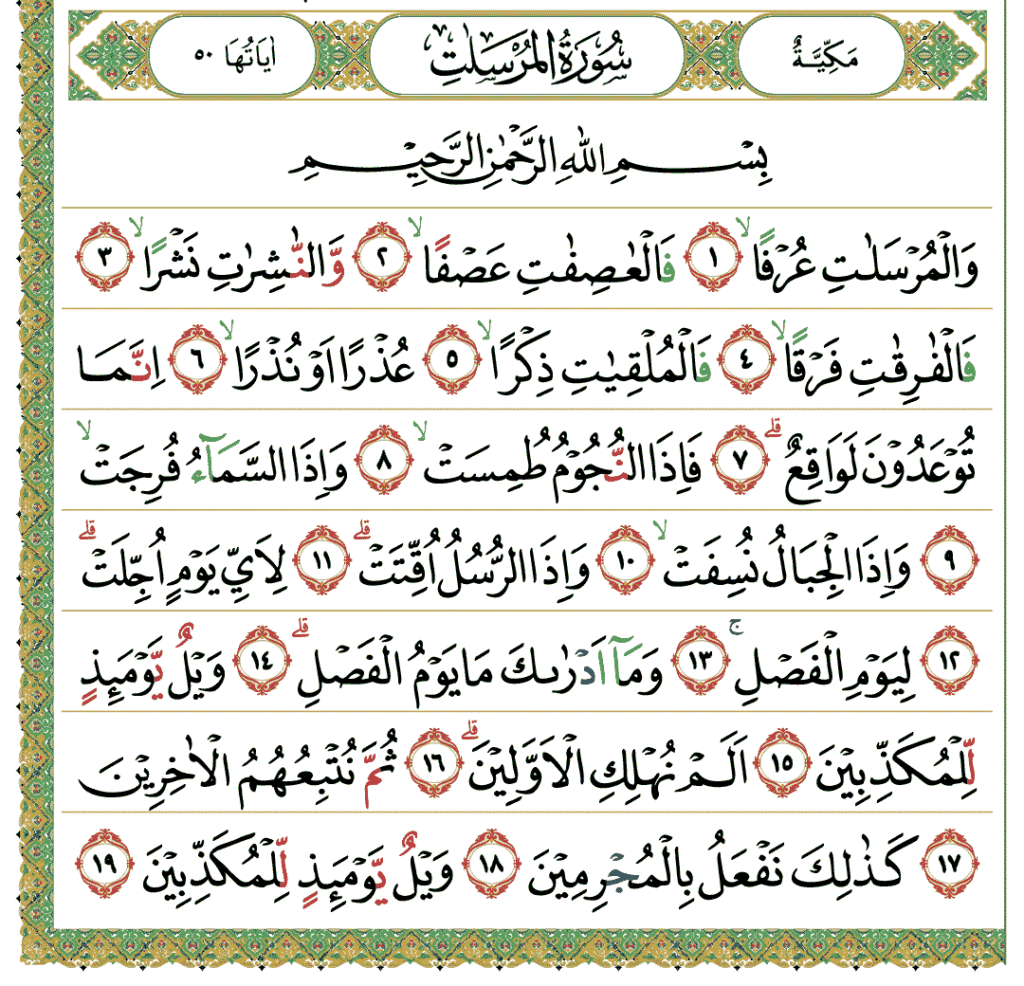 مَكِّيَّةٌ سُوْرَةُ الْمُرْسَلٰتِ اٰيَاتُهَا ٥٠
بِسْمِ اللّٰهِ الرَّحْمٰنِ الرَّحِيْمِ
وَالْمُرْسَلٰتِ عُرْفًاۙ ١ فَالْعٰصِفٰتِ عَصْفًاۙ ٢ وَّالنّٰشِرٰتِ نَشْرًاۙ ٣
فَالْفٰرِقٰتِ فَرْقًاۙ ٤ فَالْمُلْقِيٰتِ ذِكْرًاۙ ٥ عُذْرًا اَوْ نُذْرًاۙ ٦ اِنَّمَا
تُوْعَدُوْنَ لَوَاقِعٌۗ ٧ فَاِذَا النُّجُوْمُ طُمِسَتْۙ ٨ وَاِذَا السَّمَاۤءُ فُرِجَتْۙ
٩ وَاِذَا الْجِبَالُ نُسِفَتْۙ ١٠ وَاِذَا الرُّسُلُ اُقِّتَتْۗ ١١ لِاَيِّ يَوْمٍ اُجِّلَتْۗ
١٢ لِيَوْمِ الْفَصْلِۚ ١٣ وَمَآ اَدْرٰىكَ مَا يَوْمُ الْفَصْلِۗ ١٤ وَيْلٌ يَّوْمَىِٕذٍ
لِّلْمُكَذِّبِيْنَ ١٥ اَلَمْ نُهْلِكِ الْاَوَّلِيْنَۗ ١٦ ثُمَّ نُتْبِعُهُمُ الْاٰخِرِيْنَ
١٧ كَذٰلِكَ نَفْعَلُ بِالْمُجْرِمِيْنَ ١٨ وَيْلٌ يَّوْمَىِٕذٍ لِّلْمُكَذِّبِيْنَ ١٩